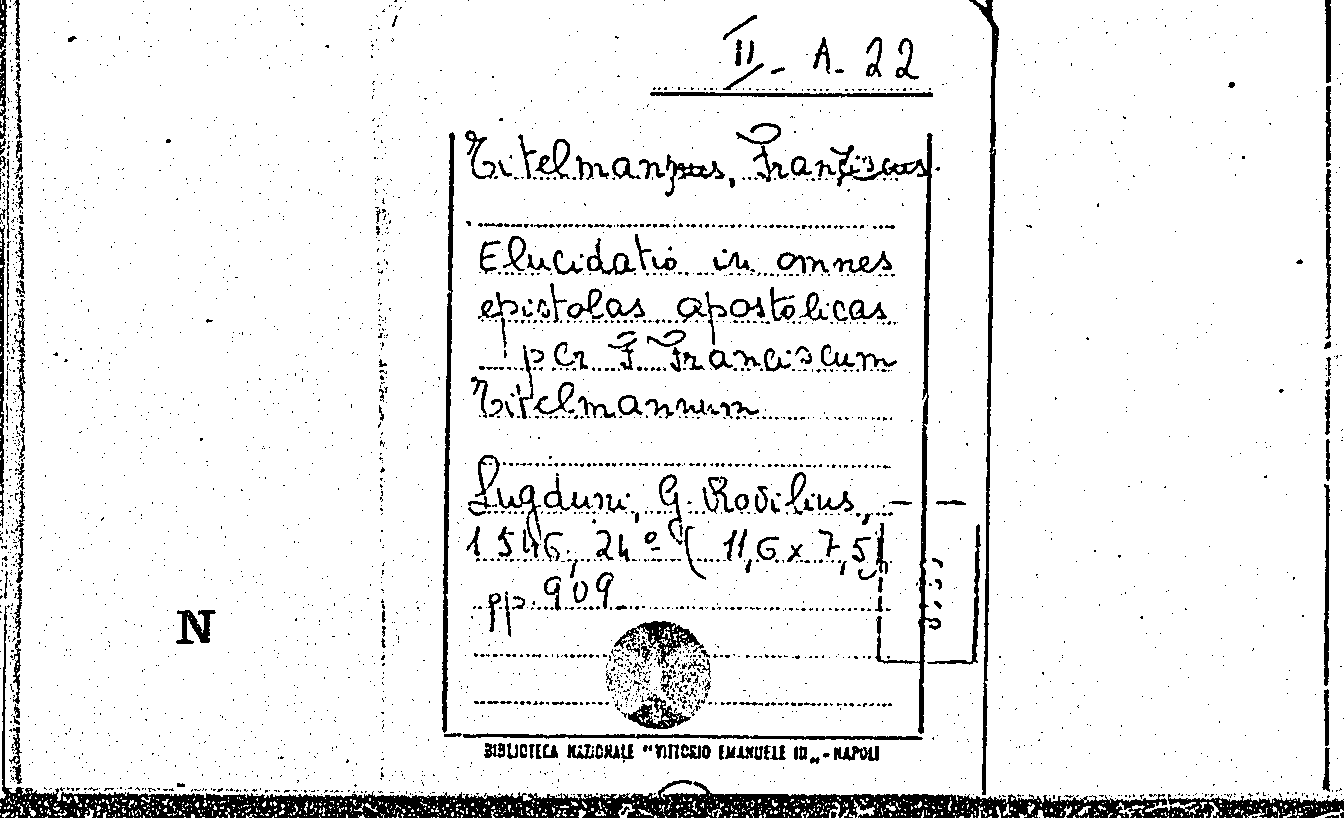 II - A - 22
Titelmannus, Franciscus.
Elucidatio in omnes
epistolas apostolicas
per F. Franciscum
Titelmannum
Lugduni, G. Rovilius,
1546, 24º (11,6 x 7,5)
pp. 909
N
BIBLIOTECA NAZIONALE "VITTORIO EMANUELE III" - NAPOLI